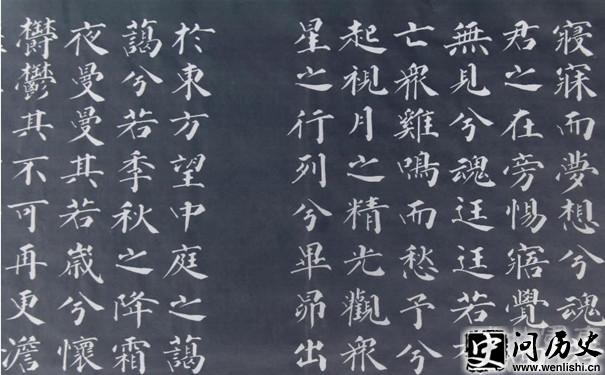 寢寐而夢想兮魂
君之在旁惕寤覺
無見兮魂迋迋若
亡衆雞鳴而愁予兮
起視月之精光觀衆
星之行列兮畢昴出
於東方望中庭之藹
藹兮若季秋之降霜
夜曼曼其若歲兮懷
鬱鬱其不可再更澹
史问历史
www.wenlishi.cn